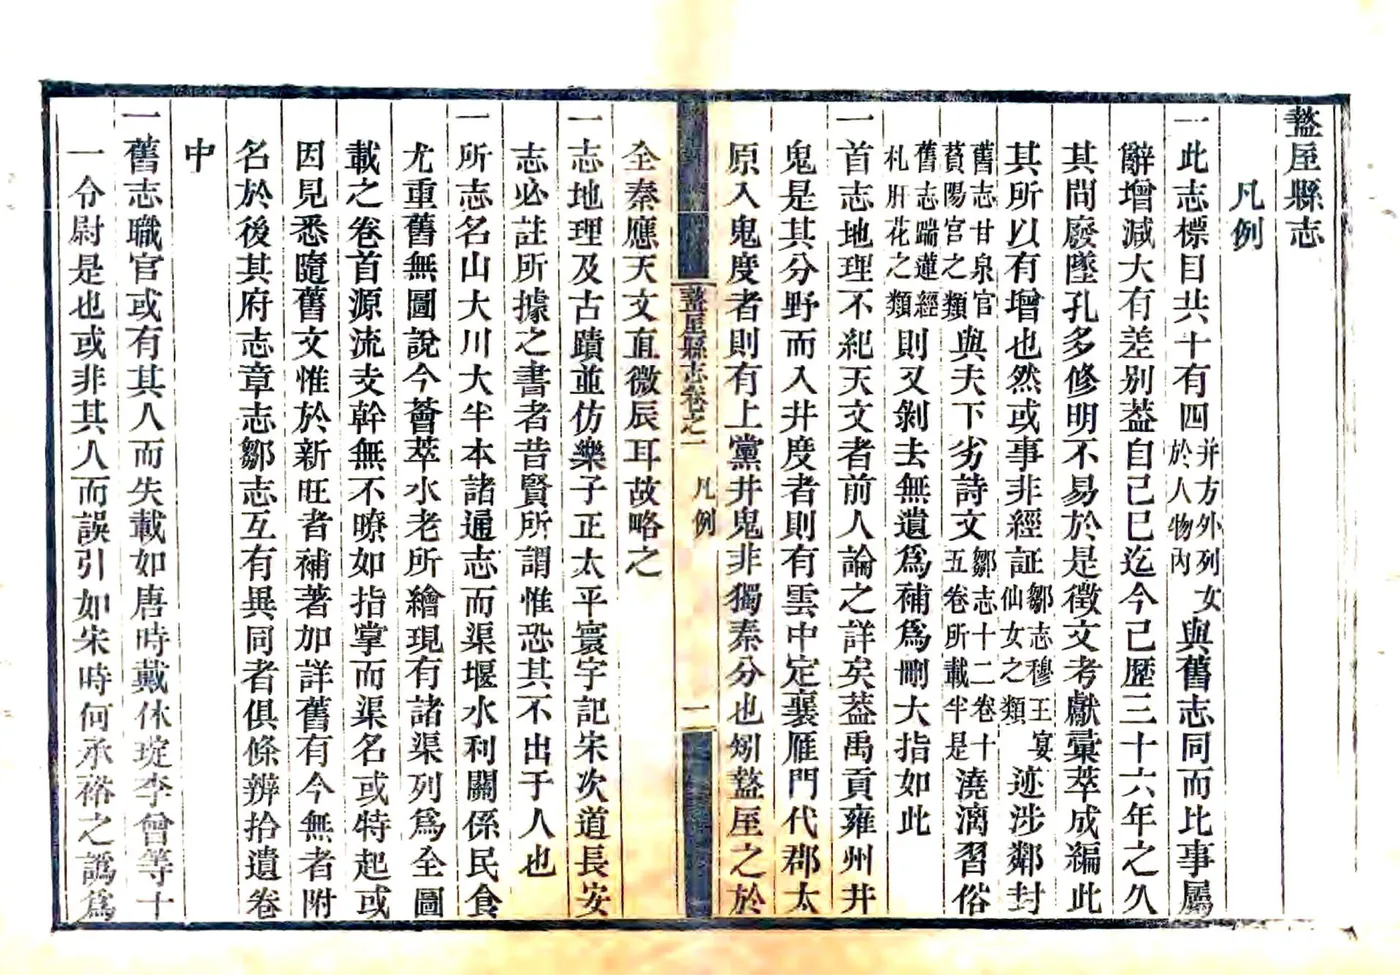 盩厔縣志
凡例
一此志標目共十有四并方外列女於人物內與舊志同而比事屬
辭增減大有差別葢自己巳迄今已歷三十六年之久
其間廢墜孔多修明不易於是徵文考獻彙萃成編此
其所以有增也然或事非經証鄒志穆王宴仙女之類迹涉鄰封
舊志甘泉宫萯陽宫之類與夫下劣詩文鄒志十二卷十五卷所載半是澆漓習俗
舊志踹蓮經札肝花之類則又剝去無遺爲補爲刪大指如此
一首志地理不紀天文者前人論之詳矣葢禹貢雍州井
鬼是其分野而入井度者則有雲中定襄雁門代郡太
原入鬼度者則有上黨井鬼非獨秦分也矧盩厔之於
盩厔縣志卷之一
凡例
一
全秦應天文直微辰耳故略之
一志地理及古蹟並仿樂子正太平寰宇記宋次道長安
志必註所據之書者昔賢所謂惟恐其不出于人也
一所志名山大川大半本諸通志而渠堰水利關係民食
尤重舊無圖說今薈萃水老所繪現有諸渠列爲全圖
載之卷首源流支幹無不暸如指掌而渠名或特起或
因見悉隨舊文惟於新旺者補著加詳舊有今無者附
名於後其府志章志鄒志互有異同者俱條辨拾遺卷
中
一舊志職官或有其人而失載如唐時戴休琁李曾等十
一令尉是也或非其人而誤引如宋時何承裕之譌爲